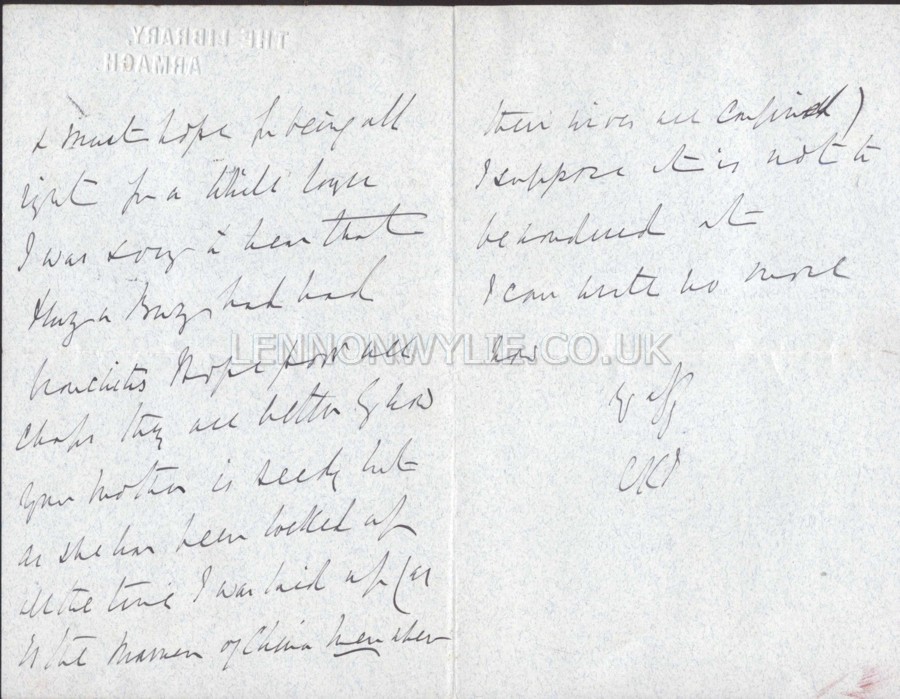 THE LIBRARY,
ARMAGH.
& must hope for being all
right for a little longer
I was sorry to hear that
Hugo had had
bronchitis Hope poor all
chaps they are better by now
your mother is seedy but
as she has been locked up
all the time I was laid up (as
is the manner of China men when
their wives are confined)
I suppose it is not to
be wondered at
I can write no more
now
LENNONWYLIE.CO.UK